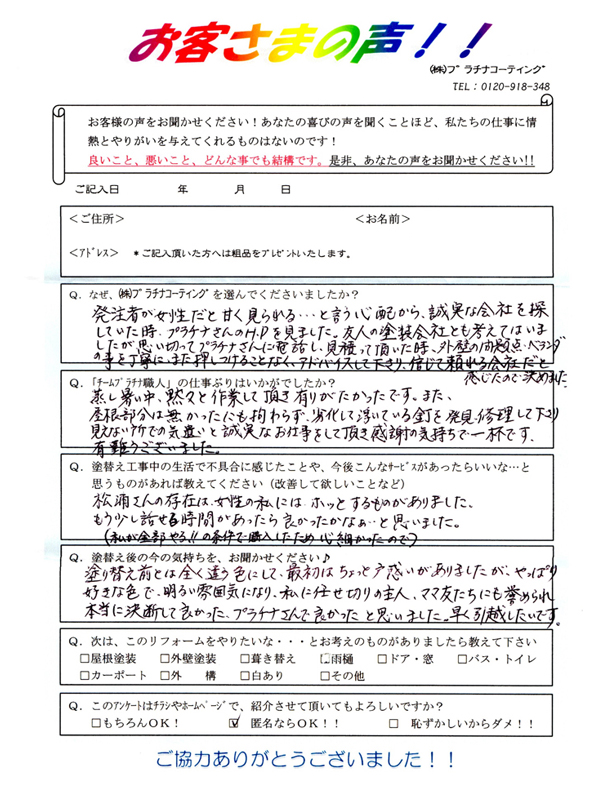 お客さまの声！！
㈱プラチナコーティング
TEL：0120-918-348
お客様の声をお聞かせください！あなたの喜びの声を聞くことほど、私たちの仕事に情
熱とやりがいを与えてくれるものはないのです！
良いこと、悪いこと、どんな事でも結構です。是非、あなたの声をお聞かせください!!
ご記入日　　　年　　　月　　　日
＜ご住所＞　　　＜お名前＞
＜ｱﾄﾞﾚｽ＞　＊ご記入頂いた方へは粗品をプレゼントいたします。
Ｑ．なぜ、㈱プラチナコーティングを選んでくださいましたか？
発注者が女性だと甘く見られる…と言う心配から、誠実な会社を探
していた時、プラチナさんのH.Pを見ました。友人の塗装会社とも考えてはいま
したが思い切ってプラチナさんに電話し、見積って頂いた時、外壁の問題点・ベランダ
の事を丁寧に、また押しつけることなく、アドバイスして下さり、信じて頼れる会社だと
感じたので決めました
Ｑ．「チームプラチナ職人」の仕事ぶりはいかがでしたか？
蒸し暑い中、黙々と作業して頂き有りがたかったです。また、
屋根部分は無かったにも拘わらず、劣化して浮いている釘を発見、修理して下さり
見えない所での気遣いと誠実なお仕事をして頂き感謝の気持ちで一杯です、
有難うございました。
Ｑ．塗替え工事中の生活で不具合に感じたことや、今後こんなｻｰﾋﾞｽがあったらいいな…と
思うものがあれば教えてください（改善して欲しいことなど）
松浦さんの存在は、女性の私には、ホッとするものがありました、
もう少し話せる時間があったら良かったかなぁ…と思いました。
(私が全部やる!!の条件で購入したため心細かったので)
Ｑ．塗替え後の今の気持ちを、お聞かせください♪
塗り替え前とは全く違う色にして、最初はちょっと戸惑いがありましたが、やっぱり
好きな色で、明るい雰囲気になり、私に任せ切りの主人、ママ友たちにも誉められ
本当に決断して良かった、プラチナさんで良かったと思いました。早く引越したいです。
Ｑ．次は、このリフォームをやりたいな・・・とお考えのものがありましたら教えて下さい
□屋根塗装　□外壁塗装　□葺き替え　□雨樋　□ドア・窓　□バス・トイレ
□カーポート　□外　構　□白あり　□その他
Ｑ．このｱﾝｹｰﾄはﾁﾗｼやﾎｰﾑﾍﾟｰｼﾞで、紹介させて頂いてもよろしいですか？
□もちろんOK！　☑ 匿名ならOK！！　□ 恥ずかしいからダメ！！
ご協力ありがとうございました！！